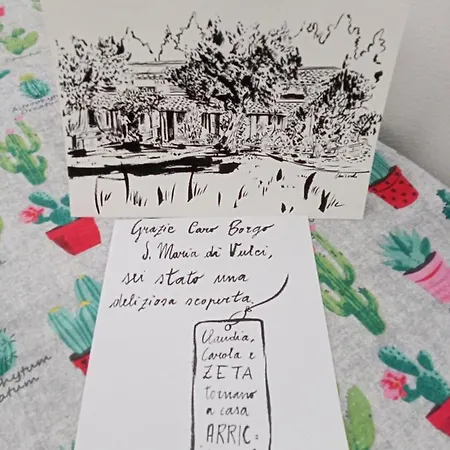 Grazie Caro Borgo
S. Maria di Vulci,
sei stato una
deliziosa scoperta.
Claudia,
Carola e
ZETA
tornano
a casa
ARRIC=